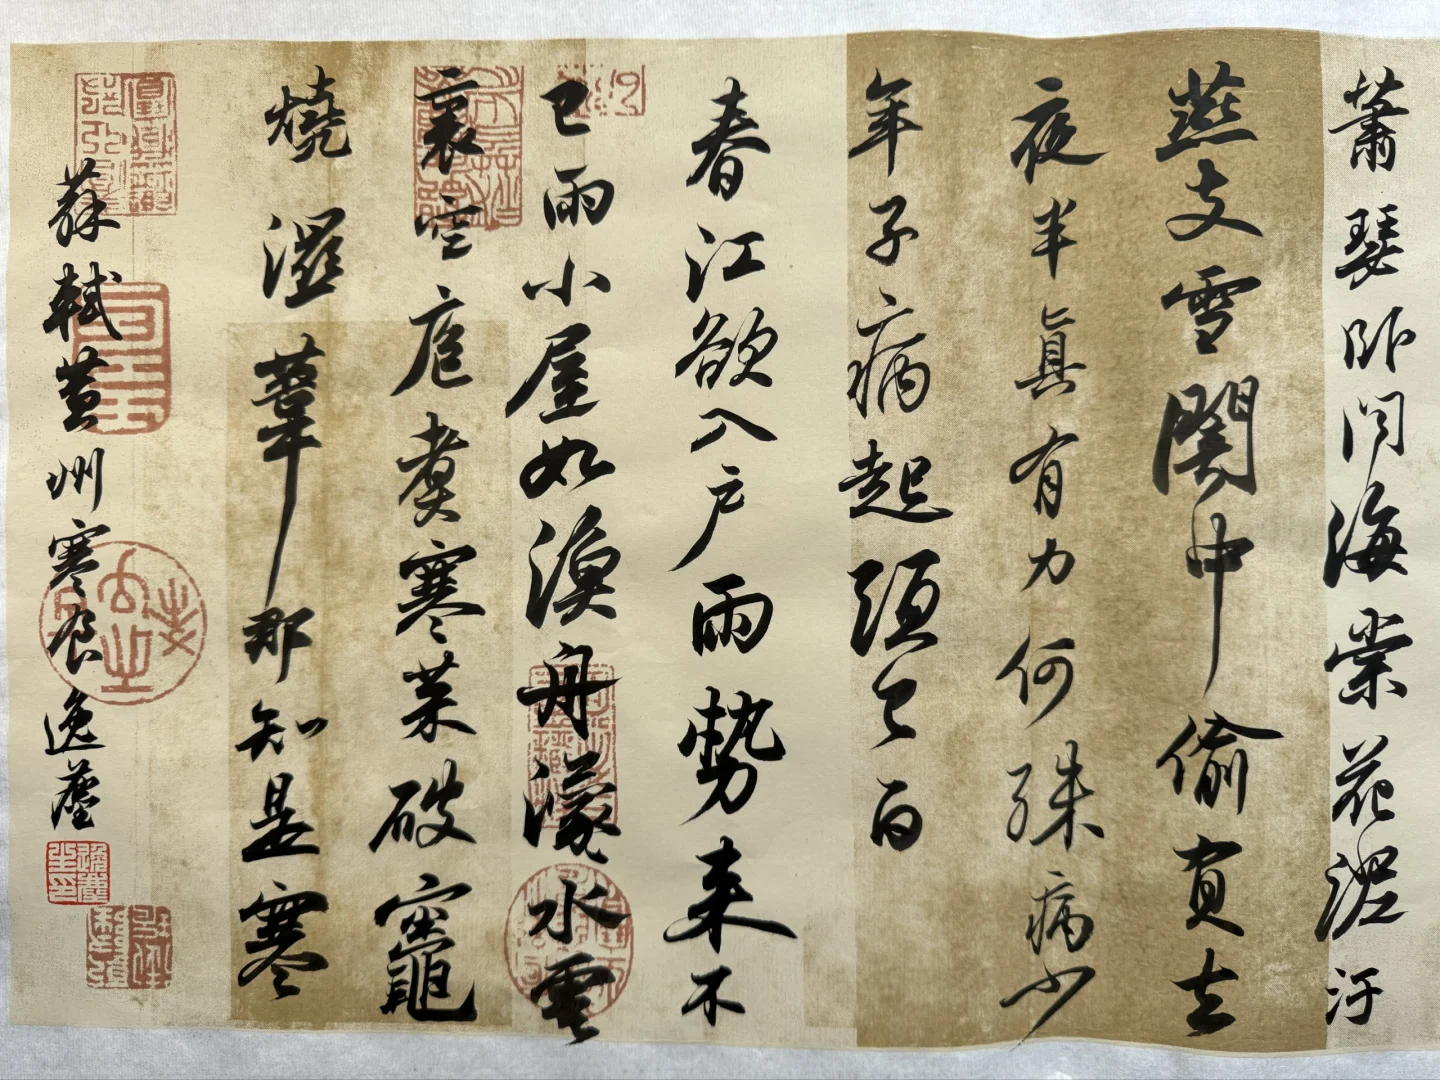 蕭瑟卧聞海棠花泥汙
燕支雪闇中偷負去
夜半真有力何殊病少
年子病起頭已白
春江欲入户雨勢来不
已雨小屋如漁舟濛水雲
裏空庖煮寒菜破竈
燒濕葦那知是寒
蘇軾黄州寒食逸塵